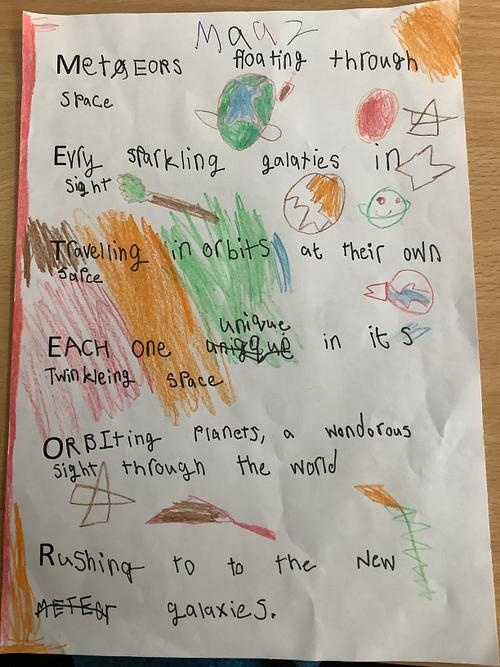 Maaz
MeteEORS floating through
space
Evry sparkling galaxies in
sight
Travelling in orbits at their own
safce
EACH one unigque unique in its
Twinkleing space
ORBIting planets, a wondorous
sight through the world
Rushing to to the New
METEor galaxies.